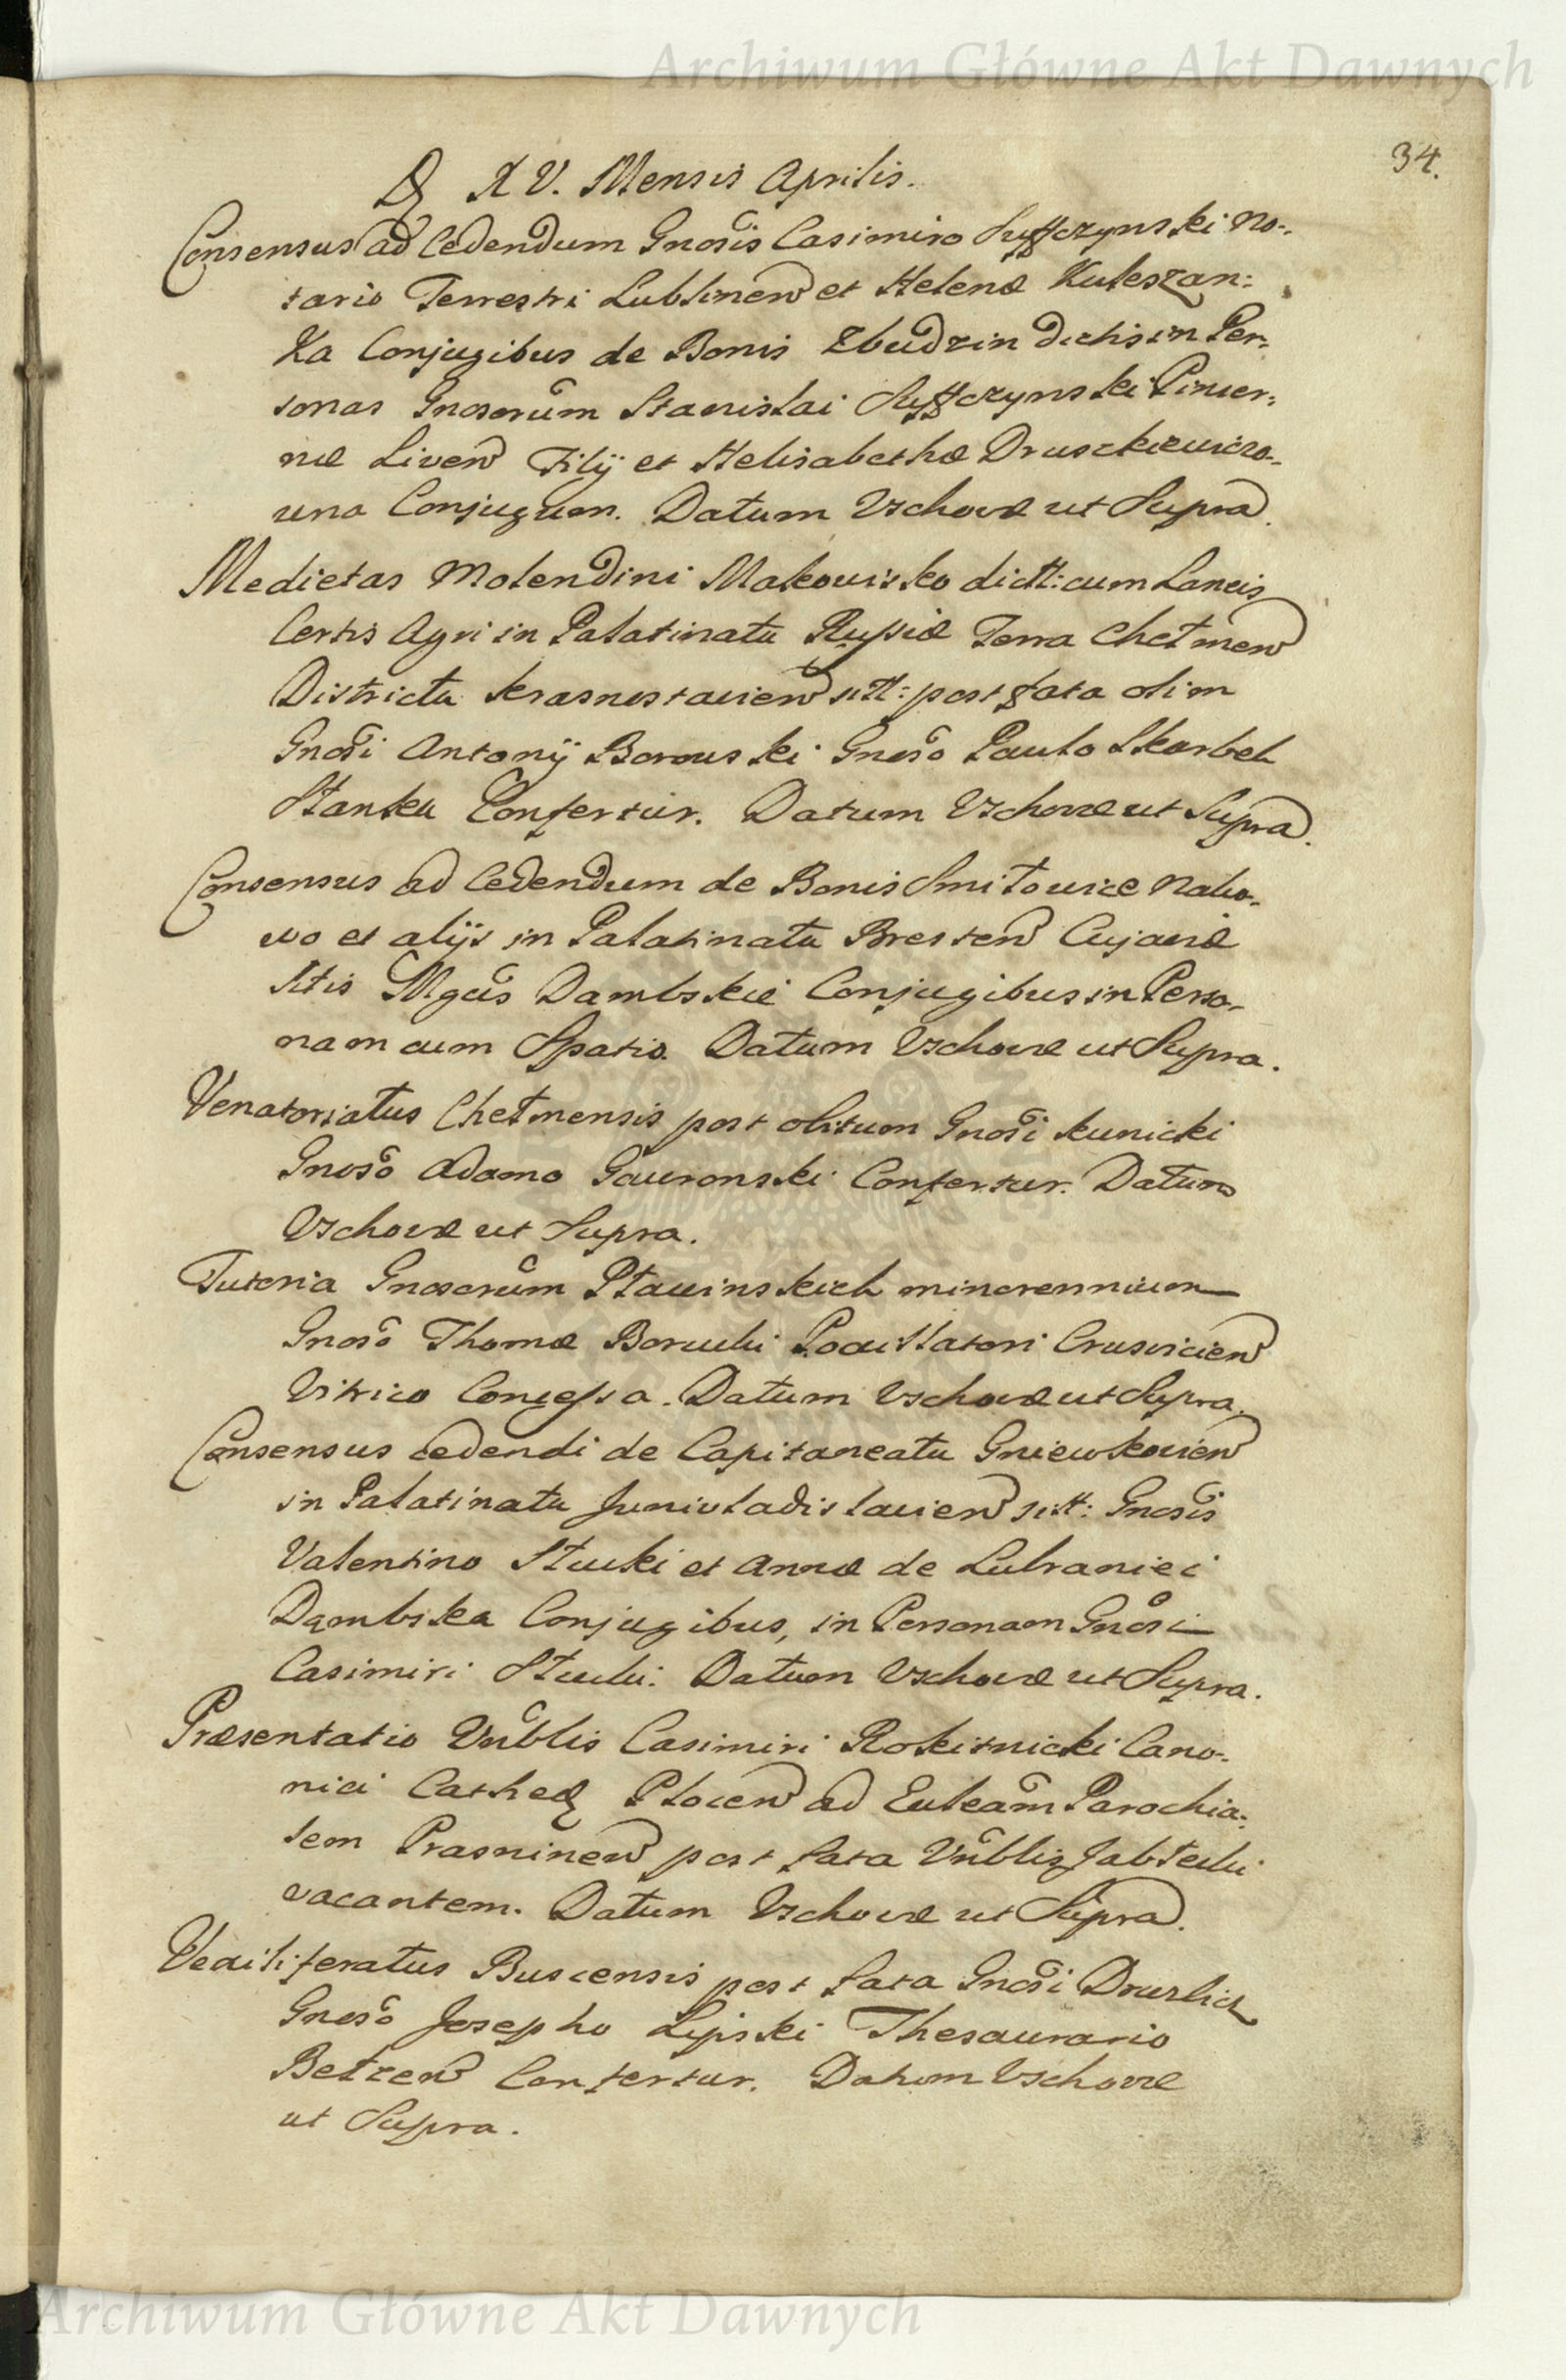 Archiwum Główne Akt Dawnych
34.
D XV. Mensis Aprilis.
Consensus ad Cedendum Gnosis Casimiro Suffczynski No-
tario Terrestri Lublinen et Helenæ Kuleszan:
Ka Conjugibus de Bonis Zbudzin dictis in Per-
sonas Gnosorum Stanislai Suffczynski Pincer-
næ Liven Filij et Helisabethæ Druszkiewiczo-
wna Conjugum. Datum Vschovæ ut Supra.
Medietas Molendini Makowisko dict: cum Laneis
Certis Agri in Palatinatu Russiæ Terra Chełmen
Districtu Krasnostavien sitt: post fata olim
Gnosi Antonij Borowski Gnoso Paulo Skarbek
Stanku Confertur. Datum Vschovæ ut Supra.
Consensus ad Cedendum de Bonis Smiłowice Nako-
wo et alijs in Palatinatu Bresten Cujaviæ
sitis Mgcis Dambskie Conjugibus in Perso-
nam cum Spatio. Datum Vschovæ ut Supra.
Venatoriatus Chełmensis post obitum Gnosi Kunicki
Gnoso Adamo Gawronski Confertur. Datum
Vschovæ ut Supra.
Tutoria Gnosorum Pławinskich minorennium
Gnoso Thomæ Borucki Pocillatori Crusvicien
Vitrico Concessa. Datum Vschovæ ut Supra.
Consensus cedendi de Capitaneatu Gniewkovien
in Palatinatu Junivladislavien sitt: Gnosis
Valentino Słucki et Annæ de Lubraniec
Dąmbska Conjugibus, in Personam Gnosi
Casimiri Słucki. Datum Vschovæ ut Supra.
Præsentatio Vnblis Casimiri Rokitnicki Cano-
nici Cathed Plocen ad Ecleam Parochia-
lem Prasninen post fata Vnblis Jabłecki
vacantem. Datum Vschovæ ut Supra.
Vexiliferatus Buscensis post fata Gnosi
Gnoso Josepho Lipski Thesaurario
Bełzen Confertur. Datum Vschovæ
ut Supra.
Archiwum Główne Akt Dawnych